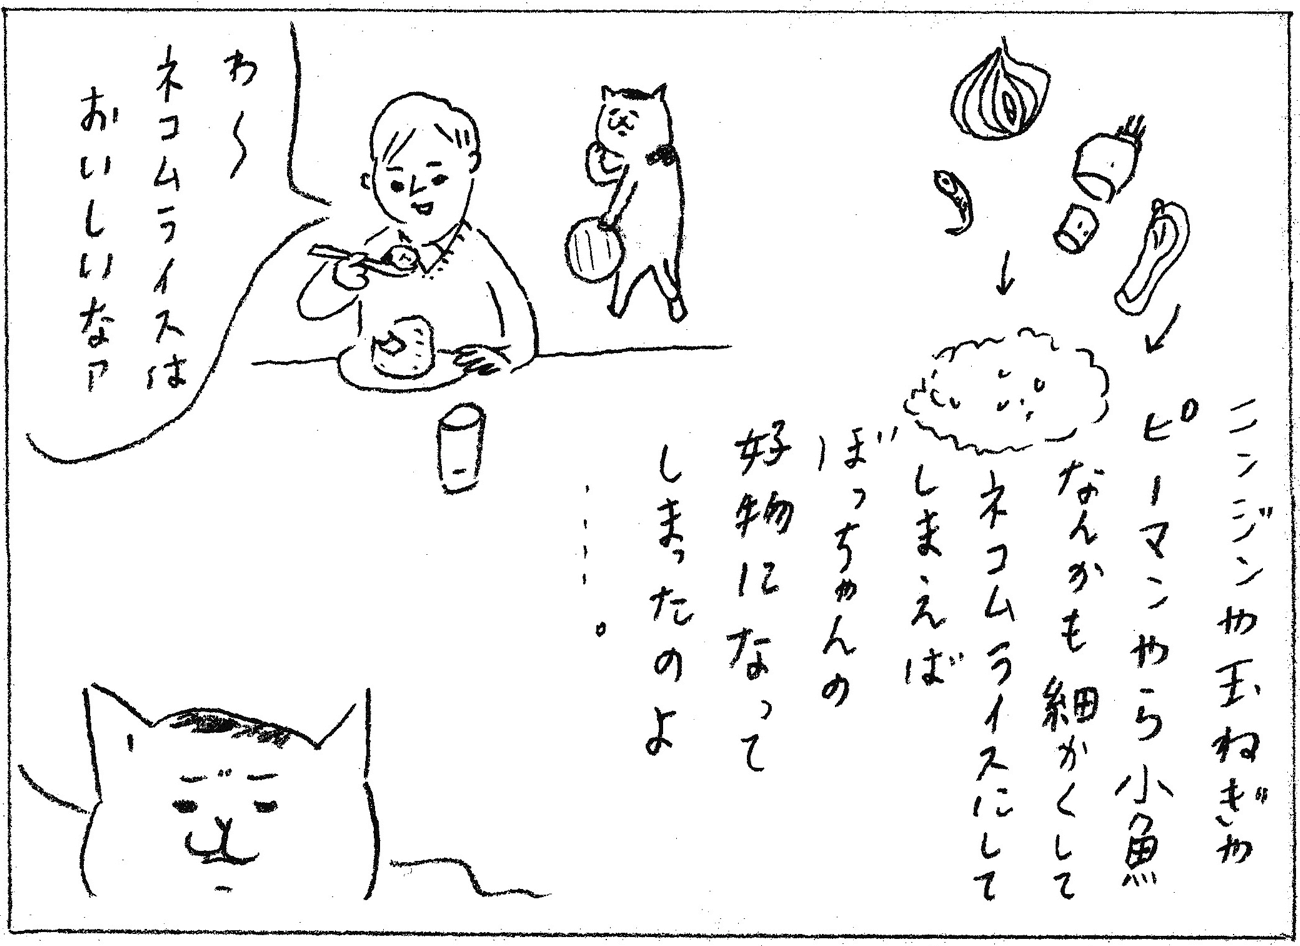 ニンジンや玉ねぎや
ピーマンやら小魚
なんかも細かくして
ネコムライスにして
しまえば
ぼっちゃんの
好物になって
しまったのよ
……。
わ〜
ネコムライスは
おいしいなァ